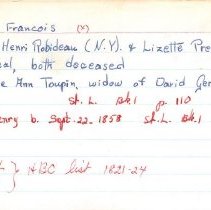 Francois (x)
Henri Robideau (N.Y.) & Lizette Pre
eal, both deceased
e Ann Toupin, widow of David Ger
St. L. Bk 1 p. 110
enry b. Sept. 22, 1858 St. L. Bk. 1
} HBC list 1821-24